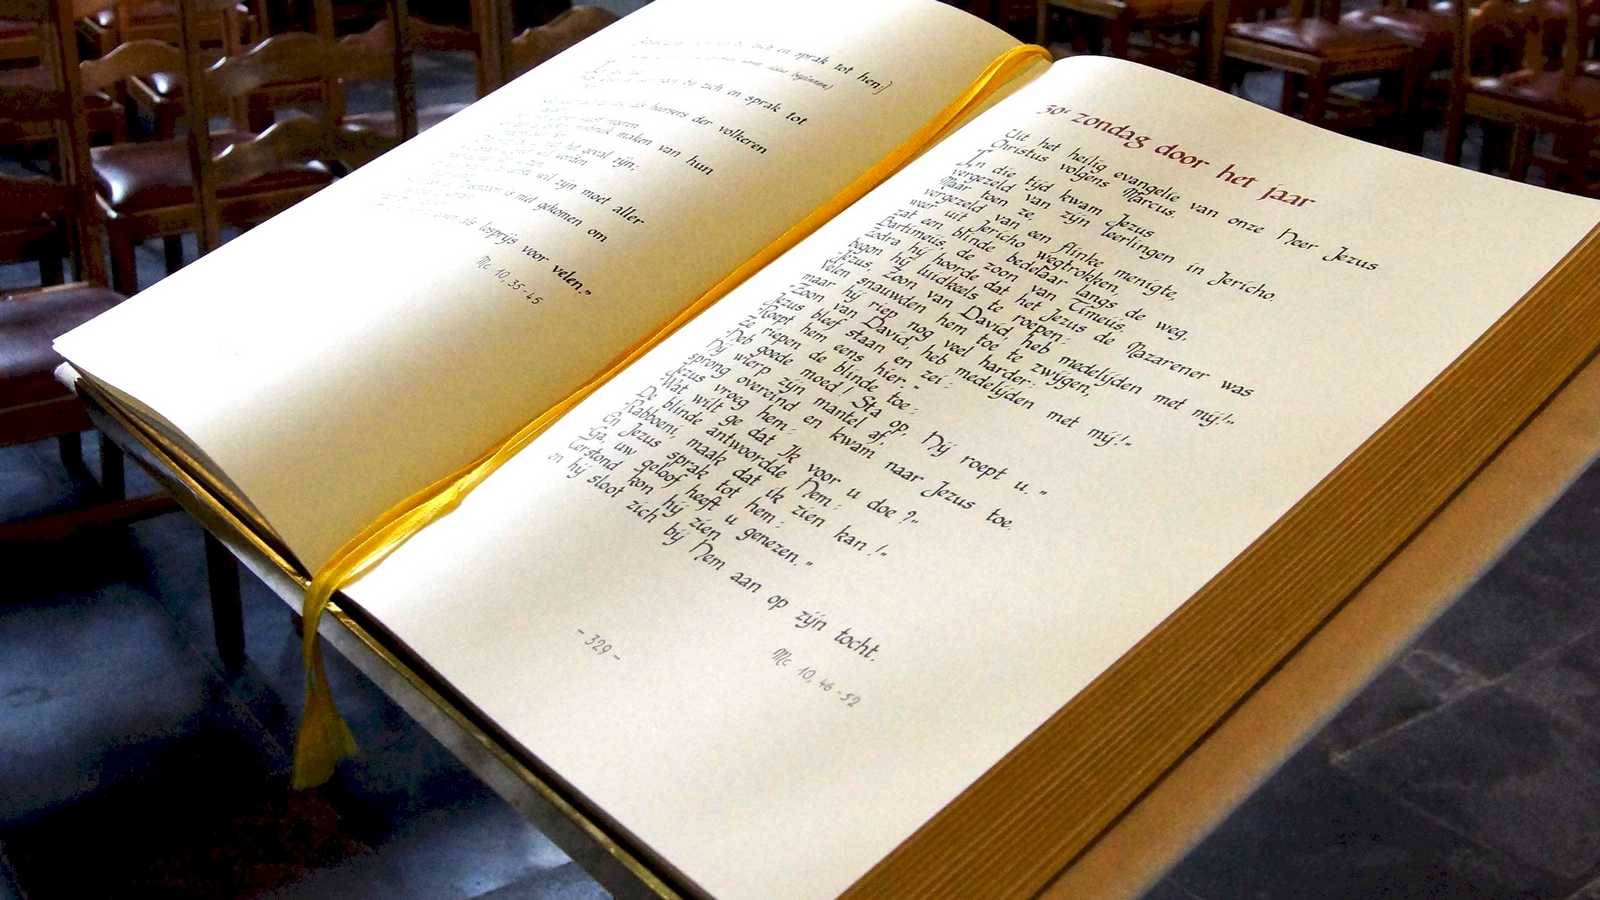 en sprak tot hen:)
zich en sprak tot
heersers der volkeren
maken van hun
het geval zijn;
wil zijn moet aller
is niet gekomen om
als losprijs voor velen."
Mc 10, 35-45
30e zondag door het jaar
Uit het heilig evangelie van onze Heer Jezus
Christus volgens Marcus.
In die tijd kwam Jezus
vergezeld van zijn leerlingen in Jericho.
Maar toen ze,
vergezeld van een flinke menigte,
weer uit Jericho wegtrokken,
zat een blinde bedelaar langs de weg.
Bartimeüs, de zoon van Timeüs.
Zodra hij hoorde dat het Jezus de Nazarener was
begon hij luidkeels te roepen:
"Jezus, Zoon van David heb medelijden met mij!"
Velen snauwden hem toe te zwijgen,
maar hij riep nog veel harder:
"Zoon van David, heb medelijden met mij!"
Jezus bleef staan en zei:
"Roept hem eens hier."
Ze riepen de blinde toe:
"Heb goede moed! Sta op, Hij roept u."
Hij wierp zijn mantel af,
sprong overeind en kwam naar Jezus toe.
Jezus vroeg hem:
"Wat wilt ge dat Ik voor u doe?"
De blinde antwoordde Hem:
"Rabboeni, maak dat ik zien kan!"
En Jezus sprak tot hem:
"Ga, uw geloof heeft u genezen."
Terstond kon hij zien
en hij sloot zich bij Hem aan op zijn tocht.
Mc 10, 46-52
- 329 -